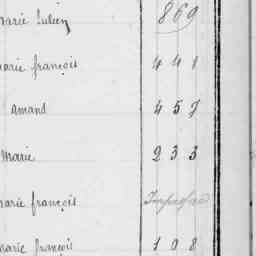 Marie Julien 869
Marie françois 441
Amand 457
Marie 233
Marie françois
Marie françois 108